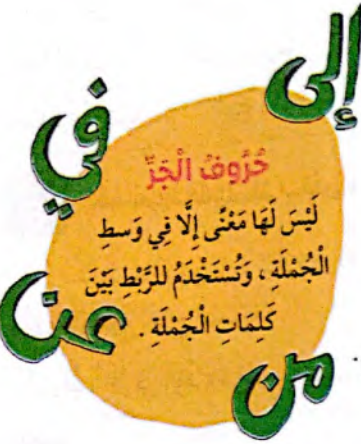 إلى
في
حُرُوفُ الْجَرِّ
لَيْسَ لَهَا مَعْنًى إِلَّا فِي وَسطِ
الْجُمْلَةِ ، وَتُسْتَخْدَمُ للرَّبْطِ بَيْنَ
كَلِمَاتِ الْجُمْلَةِ .
عن
من